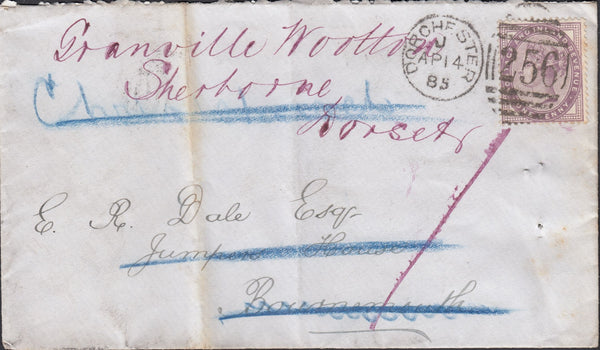 Granville Wootton
Sherborne
Dorset
DORCHESTER
J
AP 14
85
256
E. R. Dale Esq.
House
Bournemouth